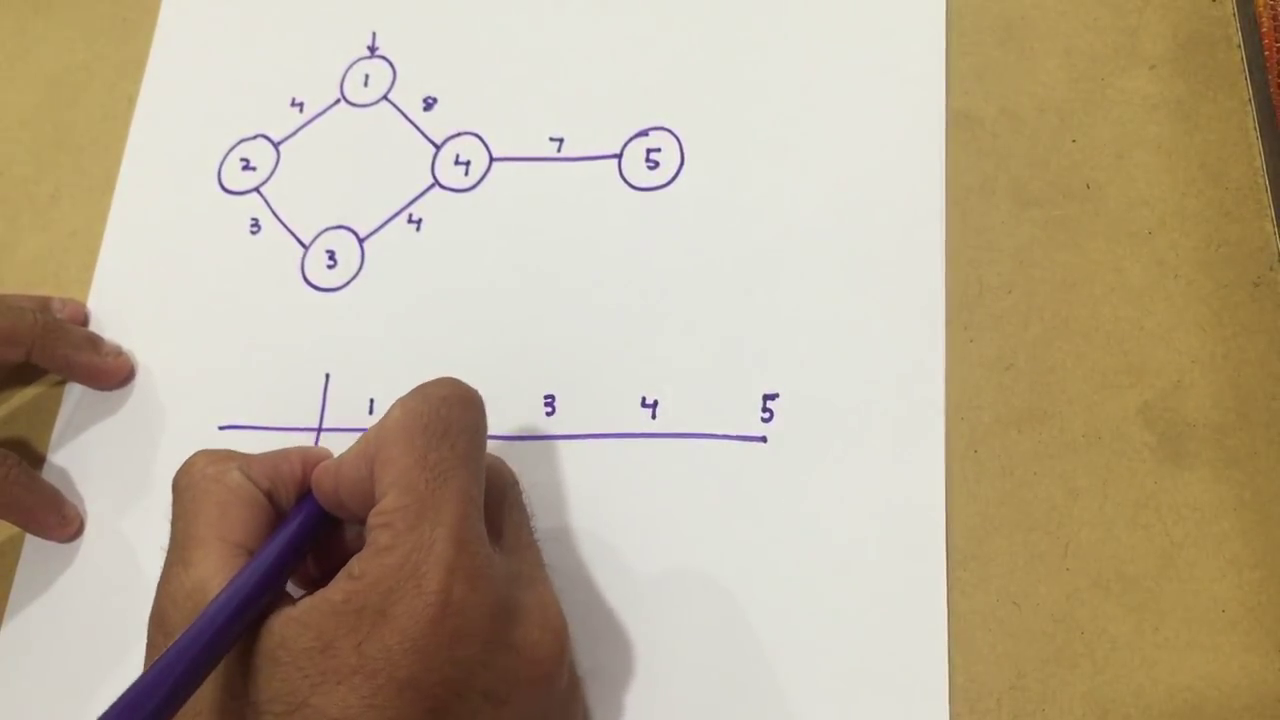 1
4 8
2 4 7 5
3 4
3
1 3 4 5